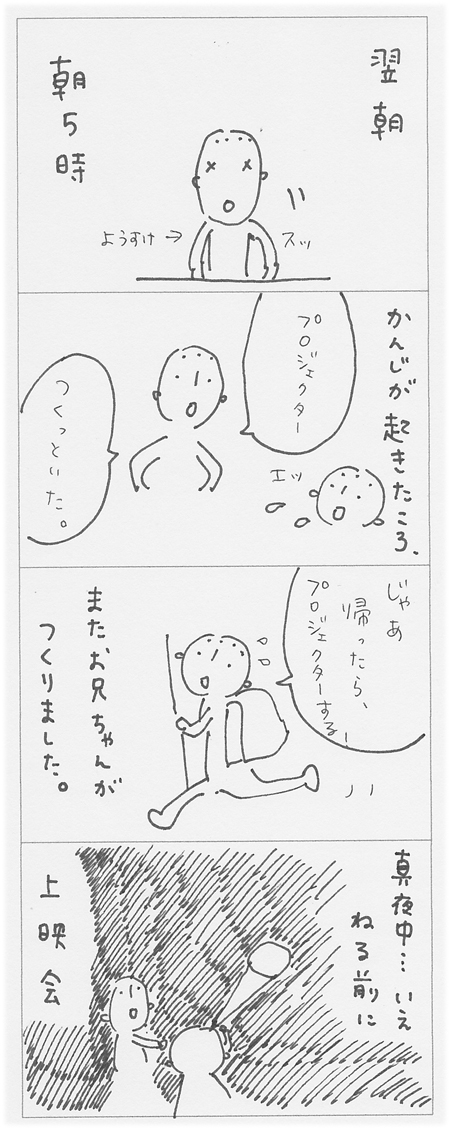 翌朝
朝5時
ようすけ→
スッ
かんじが起きたころ、
プロジェクター
つくっといた。
エッ
じゃあ
帰ったら、
プロジェクターする!
またお兄ちゃんが
つくりました。
真夜中…いえ
ねる前に
上映会